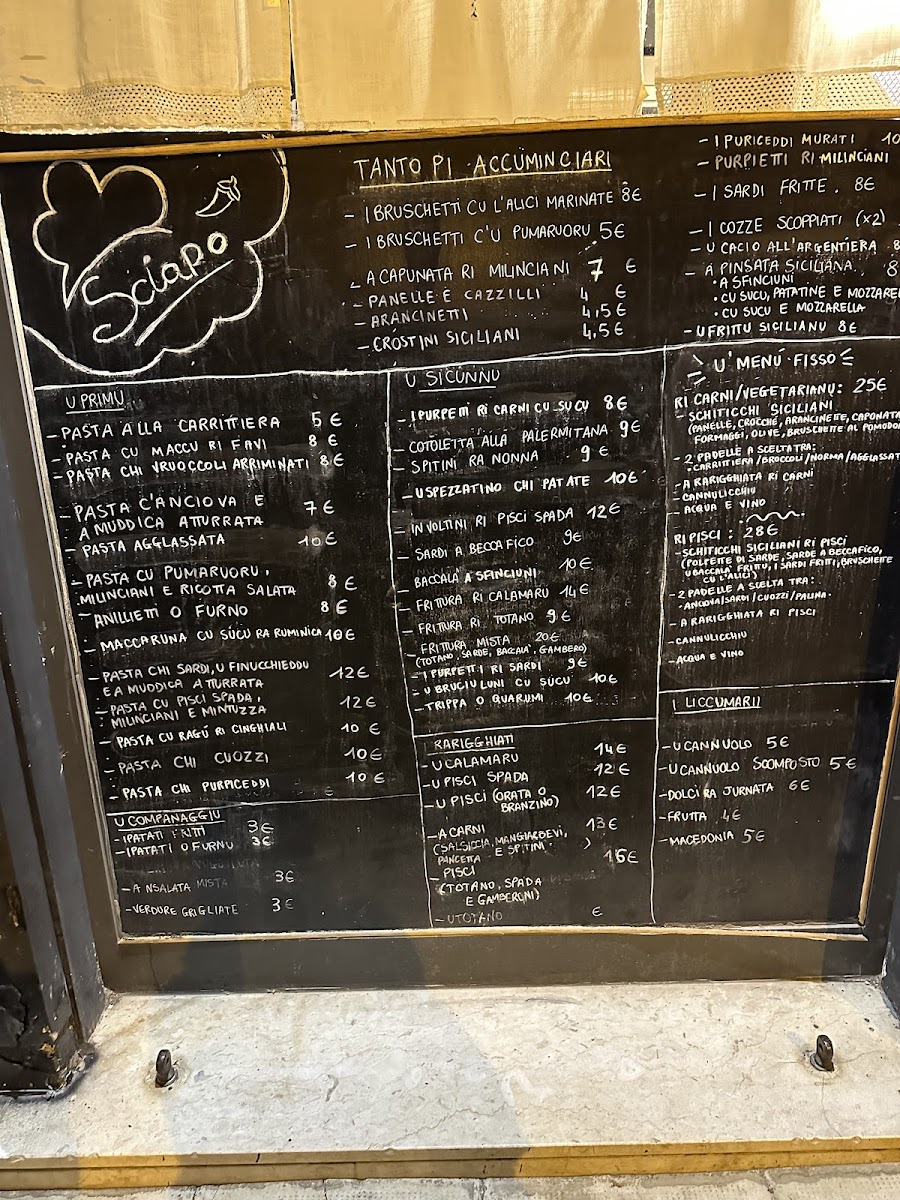 Sciapo
TANTO PI ACCUMINCIARI
- I BRUSCHETTI CU L'ALICI MARINATE 8€
- I BRUSCHETTI C'U PUMARUORU 5€
- A CAPUNATA RI MILINCIANI 7 €
- PANELLE E CAZZILLI 4 €
- ARANCINETTI 4,5€
- CROSTINI SICILIANI 4,5€
- I PURICEDDI MURATI 10
- PURPIETTI RI MILINCIANI
- I SARDI FRITTE. 8€
- I COZZE SCOPPIATI (x2)
- U CACIO ALL'ARGENTIERA 8
- A PINSATA SICILIANA 8
• A SFINCIUNI
• CU SUCU, PATATINE E MOZZAREL
• CU SUCU E MOZZARELLA
- U FRITTU SICILIANU 8€
U PRIMU
- PASTA ALLA CARRITTIERA 5€
- PASTA CU MACCU RI FAVI 8€
- PASTA CHI VRUOCCOLI ARRIMINATI 8€
- PASTA C'ANCIOVA E
A MUDDICA ATTURRATA 7€
- PASTA AGGLASSATA 10€
- PASTA CU PUMARUORU,
MILINCIANI E RICOTTA SALATA 8€
- ANILLETTI O FURNO 8€
- MACCARUNA CU SUCU RA RUMINICA 10€
- PASTA CHI SARDI, U FINUCCHIEDDU 12€
E A MUDDICA ATTURRATA
- PASTA CU PISCI SPADA, 12€
MILINCIANI E MINTUZZA
- PASTA CU RAGÙ RI CINGHIALI 10€
- PASTA CHI CUOZZI 10€
- PASTA CHI PURPICEDDI 10€
€
U COMPANAGGIU
- I PATATI FRITTI 3€
- I PATATI O FURNU 3€
- A NSALATA MISTA 3€
- VERDURE GRIGLIATE 3€
U SICUNNU
- I PURPETTI RI CARNI CU SUCU 8€
- COTOLETTA ALLA PALERMITANA 9€
- SPITINI RA NONNA 9€
- U SPEZZATINO CHI PATATE 10€
- INVOLTINI RI PISCI SPADA 12€
- SARDI A BECCAFICO 9€
- BACCALÀ A SFINCIUNI 10€
- FRITTURA RI CALAMARU 14€
- FRITTURA RI TOTANO 9€
- FRITTURA MISTA 20€
(TOTANO, SARDE, BACCALA', GAMBERO)
- I PURPETTI RI SARDI 9€
- U BRUCIULUNI CU SUCU 10€
- TRIPPA O QUARUMI 10€
RARIGGHIATI
- U CALAMARU 14€
- U PISCI SPADA 12€
- U PISCI (ORATA O 12€
BRANZINO)
- A CARNI 13€
(SALSICCIA, MANGIAREVI,
PANCETTA E SPITINI)
- PISCI 16€
(TOTANO, SPADA
E GAMBERONI)
- U TOTANO €
U' MENÙ FISSO
RI CARNI/VEGETARIANU: 25€
- SCHITICCHI SICILIANI
(PANELLE, CROCCHÈ, ARANCINETTE, CAPONATA
FORMAGGI, OLIVE, BRUSCHETTE AL POMODO
- 2 PADELLE A SCELTA TRA:
• CARRITTIERA/BROCCOLI/NORMA/AGGLASSAT
- A RARIGGHIATA RI CARNI
- CANNULICCHIU
- ACQUA E VINO
RI PISCI: 28€
- SCHITICCHI SICILIANI RI PISCI
(POLPETTE DI SARDE, SARDE A BECCAFICO,
U BACCALA' FRITTU, I SARDI FRITTI, BRUSCHETTE
CU L'ALICI)
- 2 PADELLE A SCELTA TRA:
- ANCIOVA/SARDI/CUOZZI/PALINA
- A RARIGGHIATA RI PISCI
- CANNULICCHIU
- ACQUA E VINO
I LICCUMARII
- U CANNUOLO 5€
- U CANNUOLO SCOMPOSTO 5€
- DOLCI RA JURNATA 6€
- FRUTTA 4€
- MACEDONIA 5€